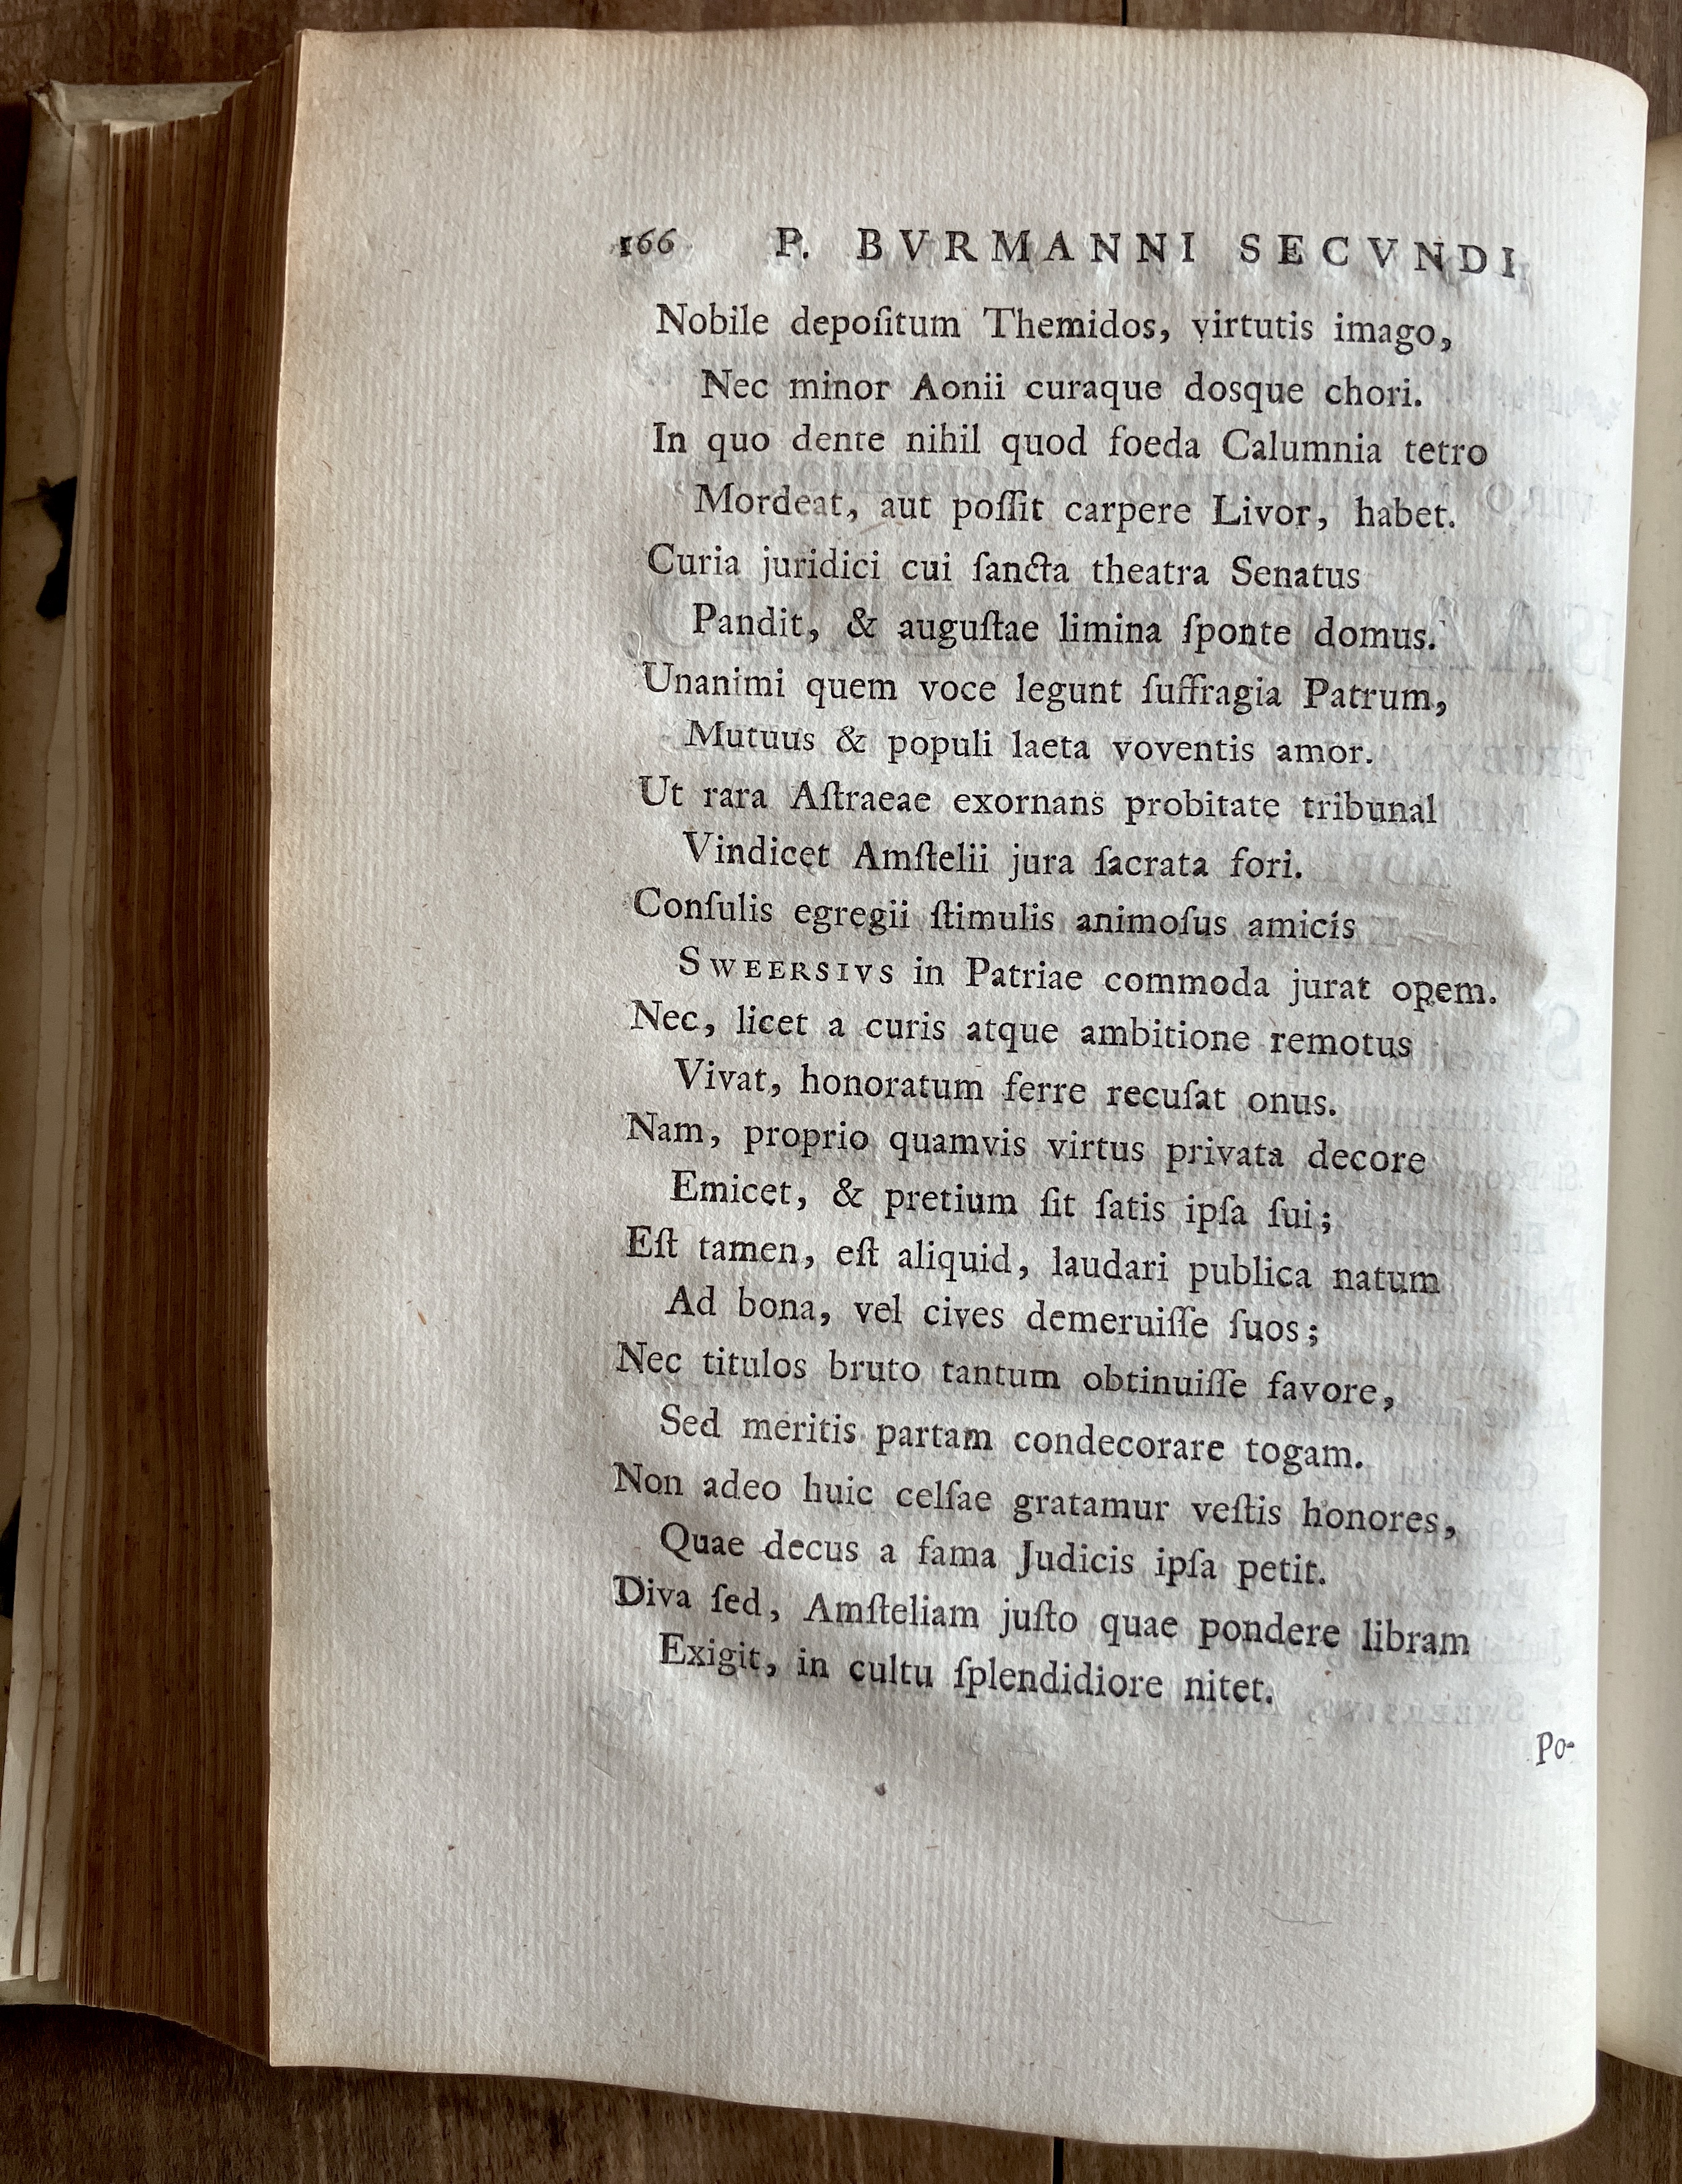 166 P. BVRMANNI SECVNDI
Nobile depoſitum Themidos, virtutis imago,
Nec minor Aonii curaque dosque chori.
In quo dente nihil quod foeda Calumnia tetro
Mordeat, aut poſſit carpere Livor, habet.
Curia juridici cui ſancta theatra Senatus
Pandit, & auguſtae limina ſponte domus.
Unanimi quem voce legunt ſuffragia Patrum,
Mutuus & populi laeta voventis amor.
Ut rara Aſtraeae exornans probitate tribunal
Vindicet Amſtelii jura ſacrata fori.
Conſulis egregii ſtimulis animoſus amicis
SWEERSIVS in Patriae commoda jurat opem.
Nec, licet a curis atque ambitione remotus
Vivat, honoratum ferre recuſat onus.
Nam, proprio quamvis virtus privata decore
Emicet, & pretium ſit ſatis ipſa ſui;
Eſt tamen, eſt aliquid, laudari publica natum
Ad bona, vel cives demeruiſſe ſuos;
Nec titulos bruto tantum obtinuiſſe favore,
Sed meritis partam condecorare togam.
Non adeo huic celſae gratamur veſtis honores,
Quae decus a fama Judicis ipſa petit.
Diva ſed, Amſteliam juſto quae pondere libram
Exigit, in cultu ſplendidiore nitet.
Po-